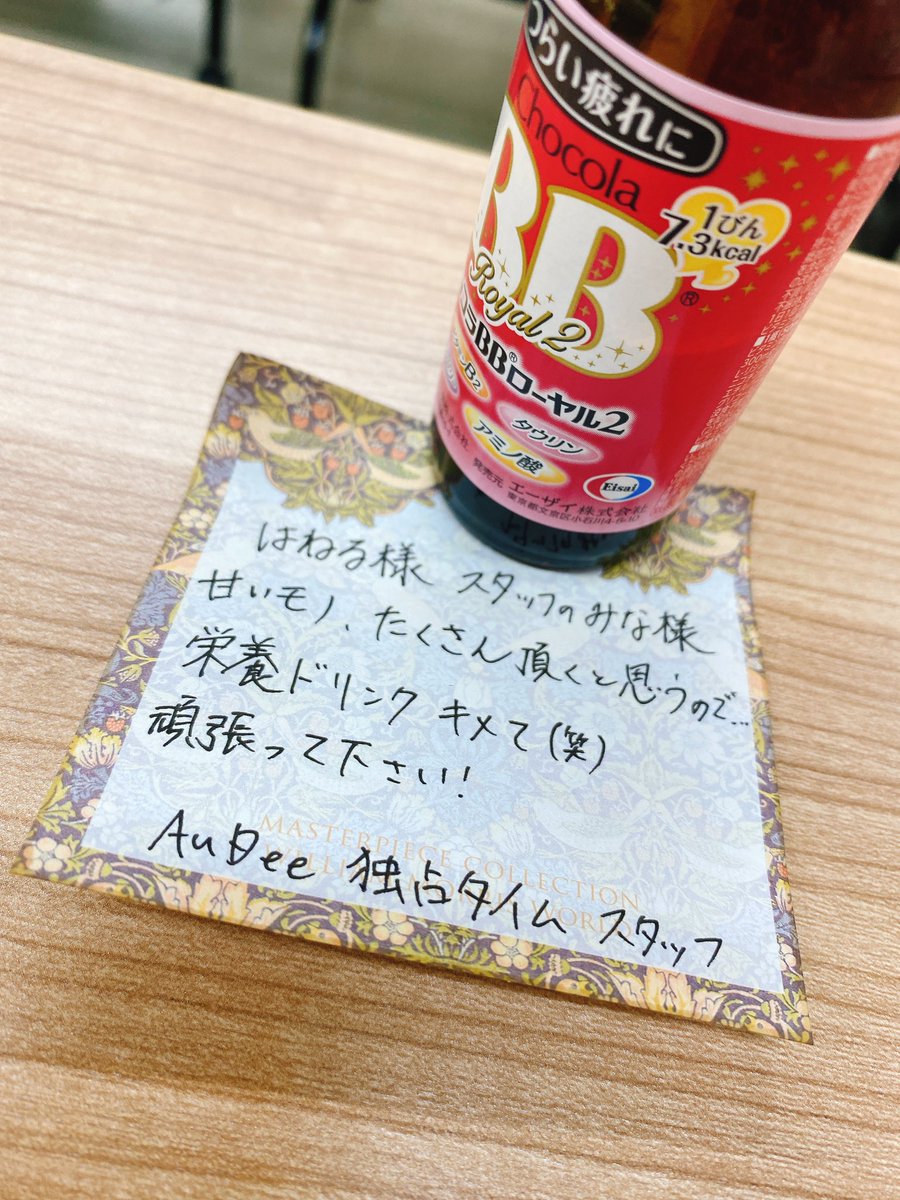 つらい疲れに
Chocola
BB
Royal 2
1びん
7.3kcal
ラBB®ローヤル2
B2
タウリン
アミノ酸
Eisai
発売元 エーザイ株式会社
東京都文京区小石川4-6-10
はねる様 スタッフのみな様
甘いモノ、たくさん頂くと思うので…
栄養ドリンク キメて(笑)
頑張って下さい!
MASTERPIECE COLLECTION
AuBee 独占タイム スタッフ